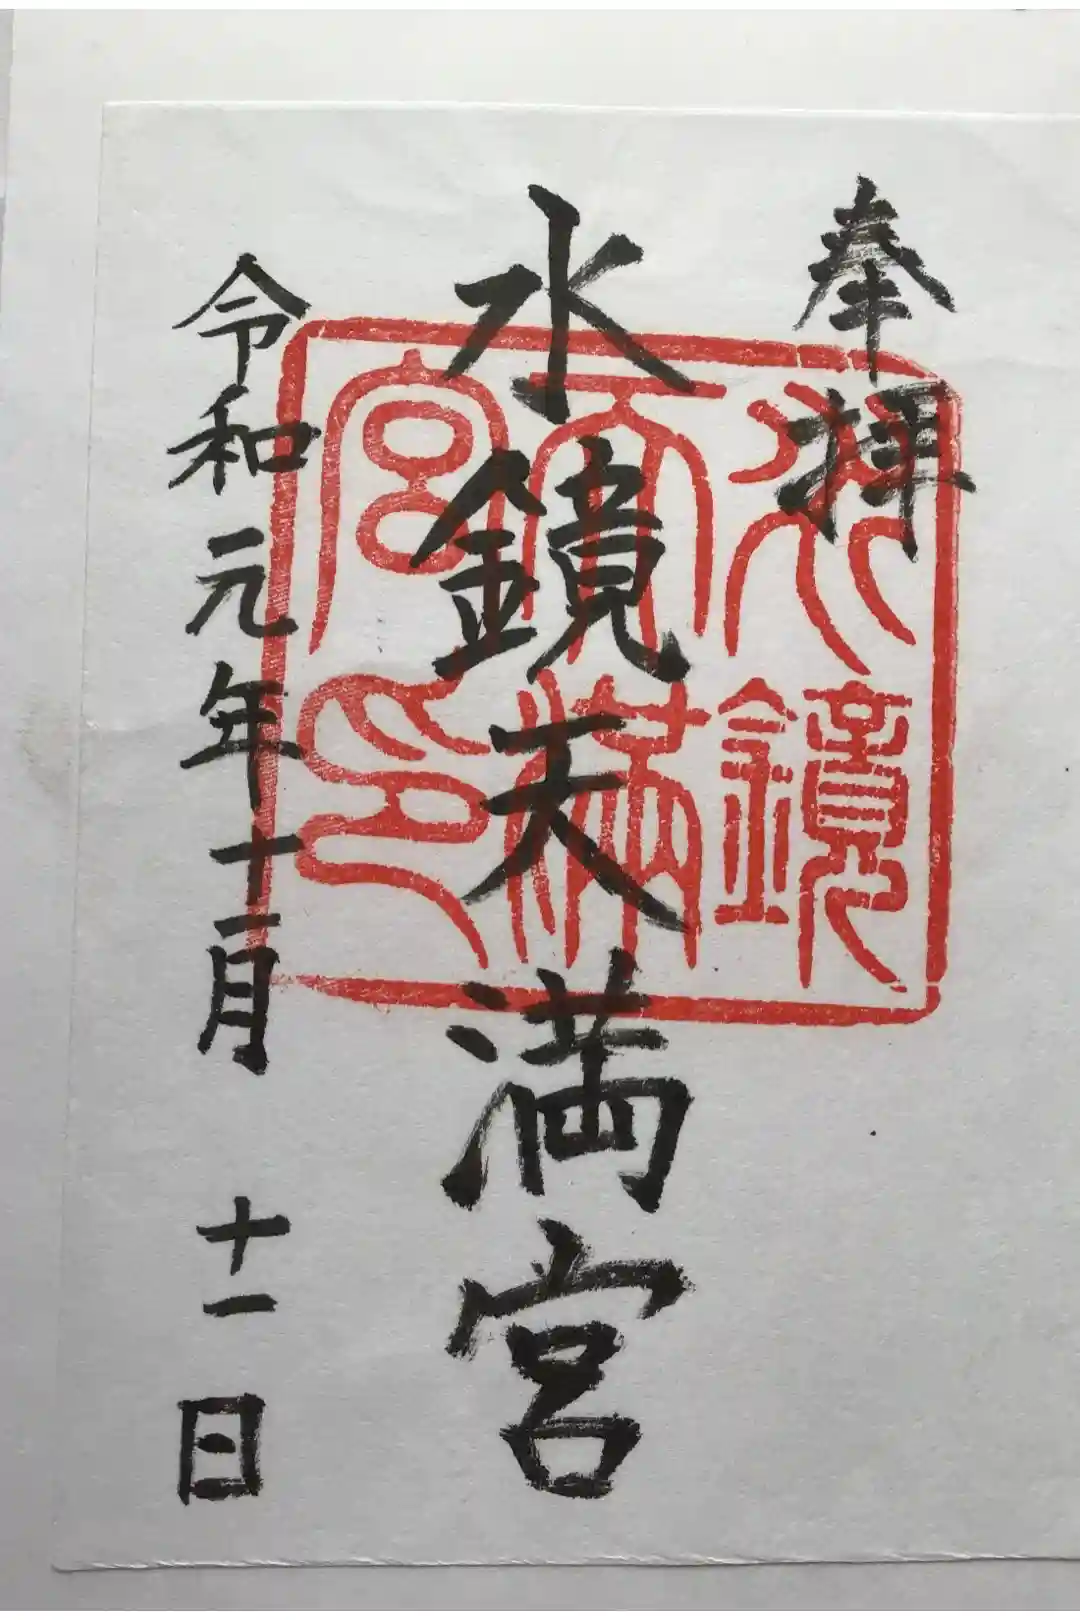 奉拝
水鏡天満宮
令和元年十一月 十一日
水鏡
天満
宮印